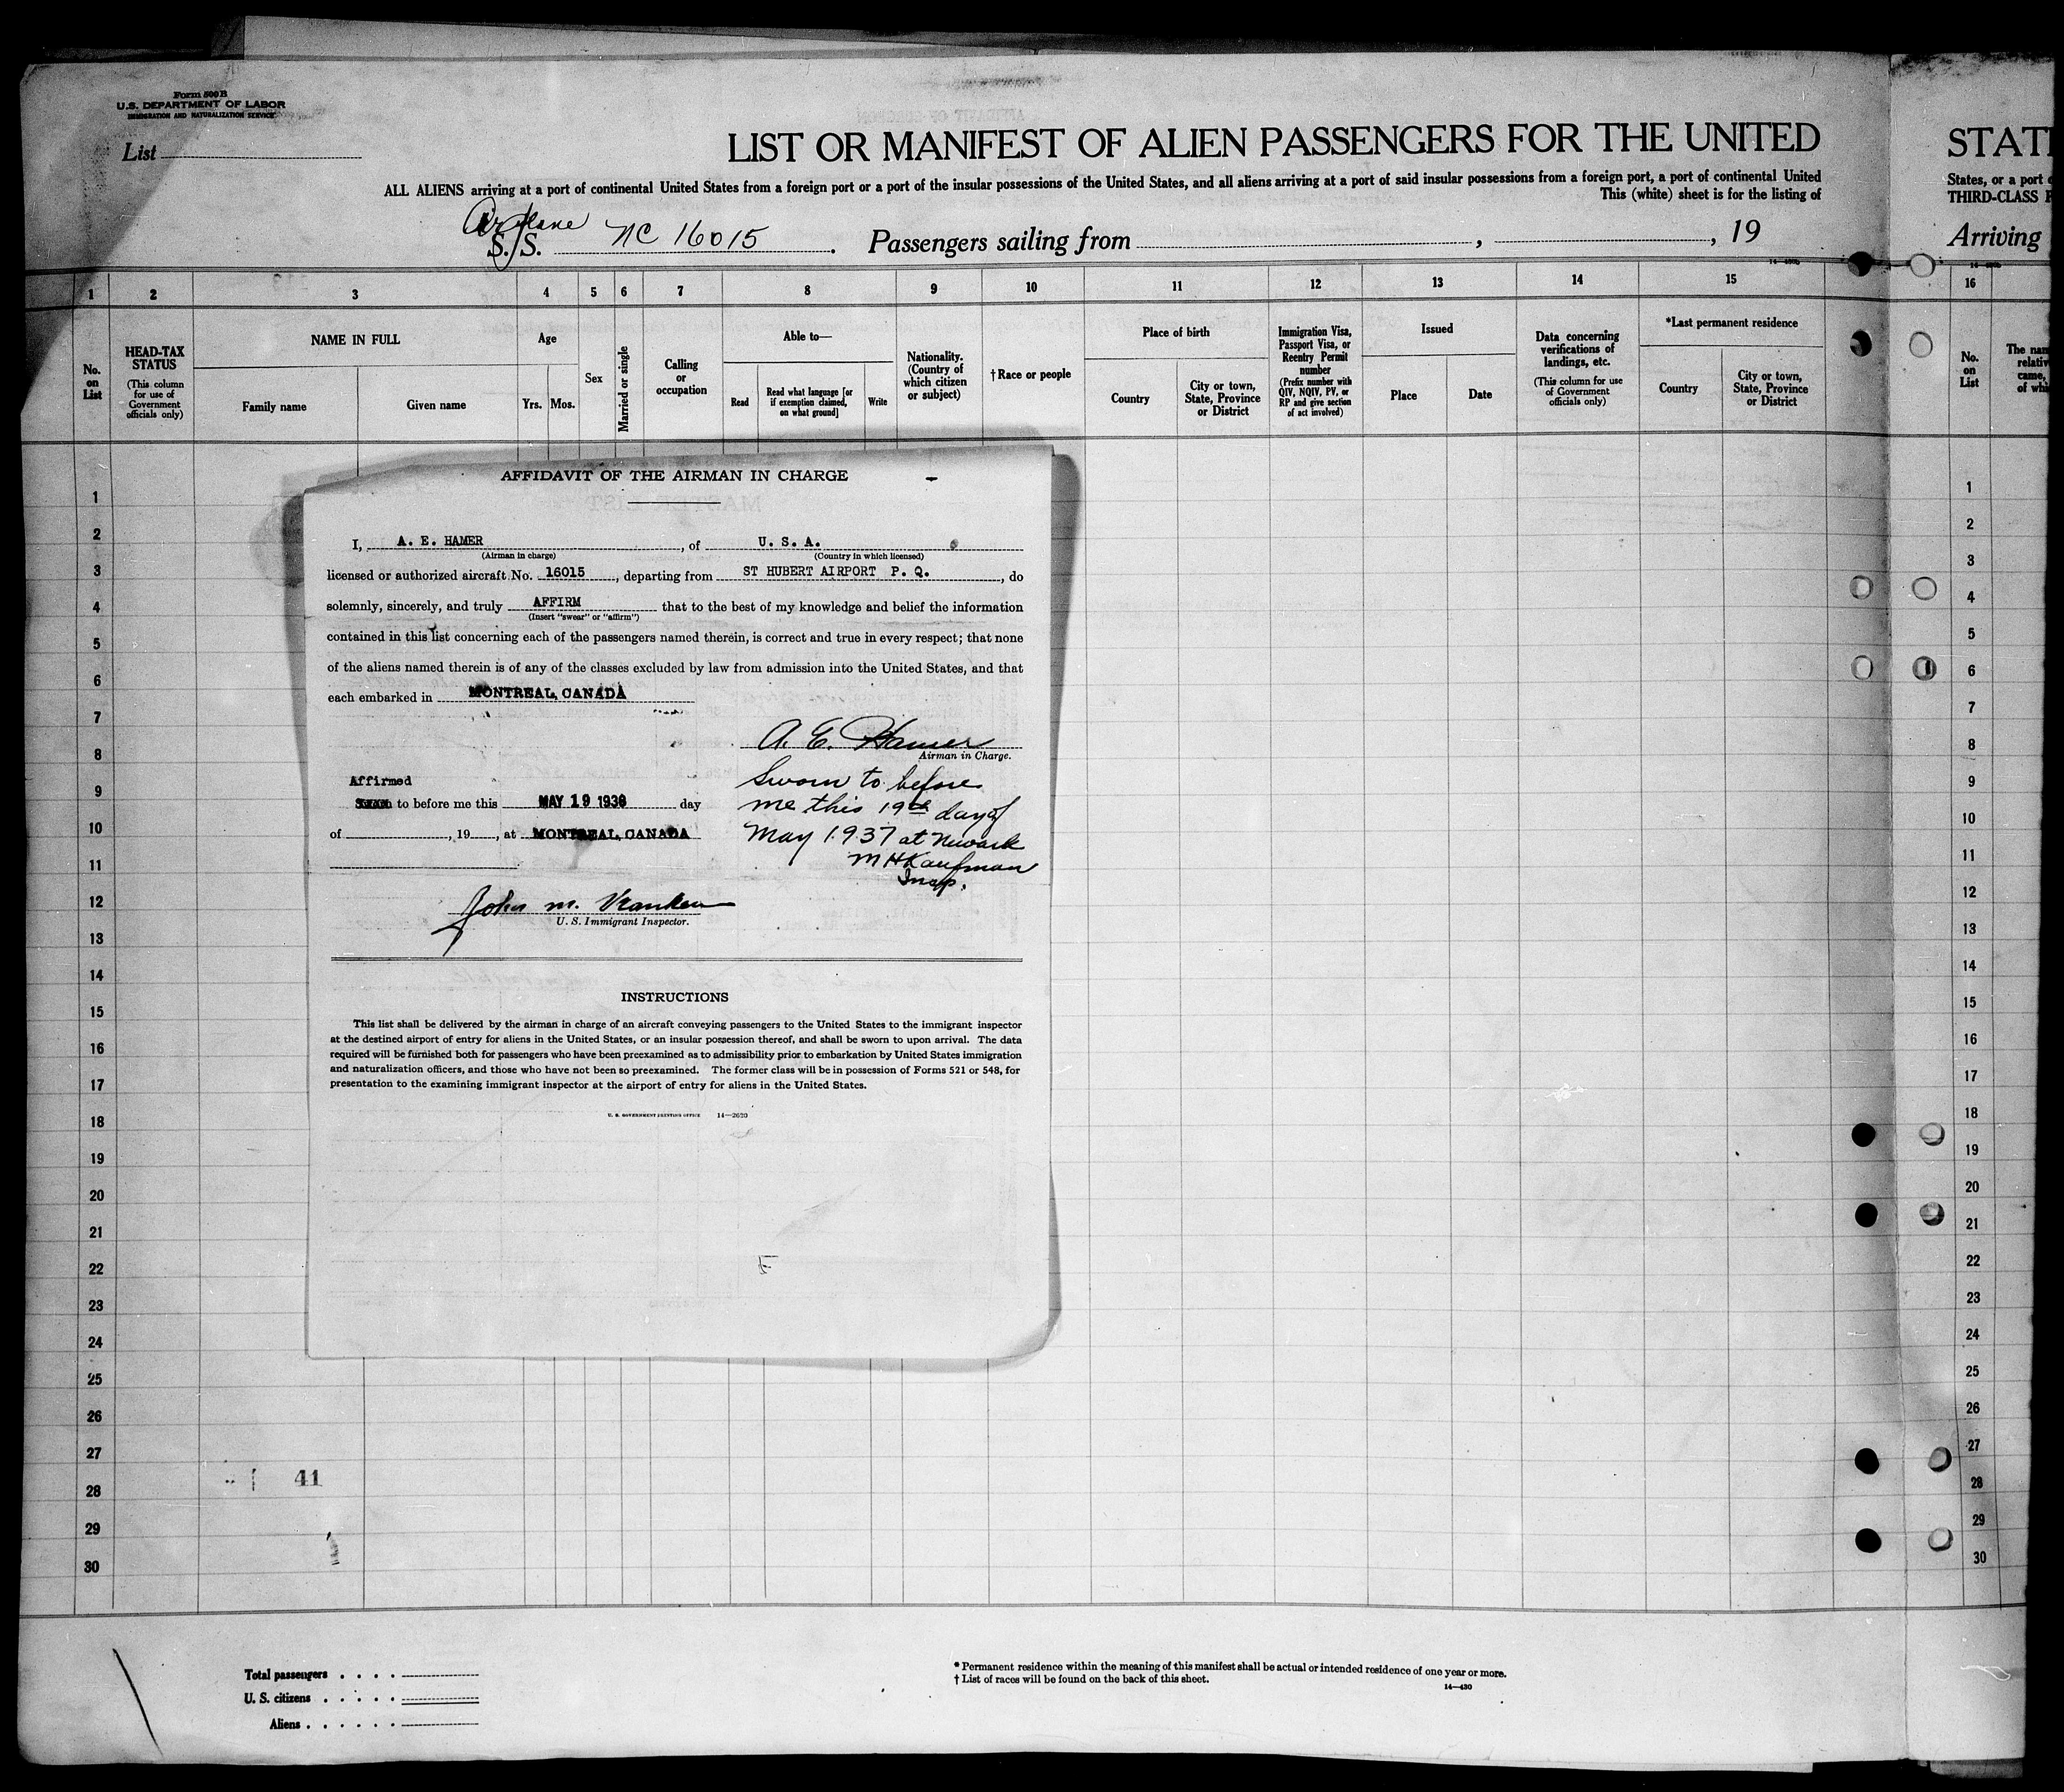 Form 500 B
U.S. DEPARTMENT OF LABOR
IMMIGRATION AND NATURALIZATION SERVICE
List
LIST OR MANIFEST OF ALIEN PASSENGERS FOR THE UNITED
STAT
ALL ALIENS arriving at a port of continental United States from a foreign port or a port of the insular possessions of the United States, and all aliens arriving at a port of said insular possessions from a foreign port, a port of continental United
States, or a port o
This (white) sheet is for the listing of
THIRD-CLASS P
Airplane
S. S. NC 16015. Passengers sailing from , , 19
Arriving
1 2 3 4 5 6 7 8 9 10 11 12 13 14 15 16
No. on List
HEAD-TAX STATUS
(This column for use of Government officials only)
NAME IN FULL
Family name
Given name
Age
Yrs. Mos.
Sex
Married or single
Calling or occupation
Able to—
Read
Read what language [or if exemption claimed, on what ground]
Write
Nationality. (Country of which citizen or subject)
† Race or people
Place of birth
Country
City or town, State, Province or District
Immigration Visa, Passport Visa, or Reentry Permit number
(Prefix number with QIV, NQIV, PV, or RP and give section of act involved)
Issued
Place
Date
Data concerning verifications of landings, etc.
(This column for use of Government officials only)
*Last permanent residence
Country
City or town, State, Province or District
No. on List
The nam
relativ
came,
of whi
AFFIDAVIT OF THE AIRMAN IN CHARGE
I, A. E. HAMER, of U. S. A.
(Airman in charge) (Country in which licensed)
licensed or authorized aircraft No. 16015, departing from ST HUBERT AIRPORT P. Q., do
solemnly, sincerely, and truly AFFIRM that to the best of my knowledge and belief the information
(Insert "swear" or "affirm")
contained in this list concerning each of the passengers named therein, is correct and true in every respect; that none
of the aliens named therein is of any of the classes excluded by law from admission into the United States, and that
each embarked in MONTREAL, CANADA
A. E. Hamer
Airman in Charge.
Affirmed
to before me this MAY 19 1938 day
of , 19 , at MONTREAL, CANADA
Sworn to before
me this 19th day of
May 1937 at Newark
M H Kaufman
Insp.
John M. Vranken
U. S. Immigrant Inspector.
INSTRUCTIONS
This list shall be delivered by the airman in charge of an aircraft conveying passengers to the United States to the immigrant inspector
at the destined airport of entry for aliens in the United States, or an insular possession thereof, and shall be sworn to upon arrival. The data
required will be furnished both for passengers who have been preexamined as to admissibility prior to embarkation by United States immigration
and naturalization officers, and those who have not been so preexamined. The former class will be in possession of Forms 521 or 548, for
presentation to the examining immigrant inspector at the airport of entry for aliens in the United States.
U. S. GOVERNMENT PRINTING OFFICE 14—2620
1 1
2 2
3 3
4 4
5 5
6 6
7 7
8 8
9 9
10 10
11 11
12 12
13 13
14 14
15 15
16 16
17 17
18 18
19 19
20 20
21 21
22 22
23 23
24 24
25 25
26 26
27 27
41
28 28
29 29
30 30
Total passengers . . . .
U. S. citizens . . . . .
Aliens . . . . . .
* Permanent residence within the meaning of this manifest shall be actual or intended residence of one year or more.
† List of races will be found on the back of this sheet.
14—430